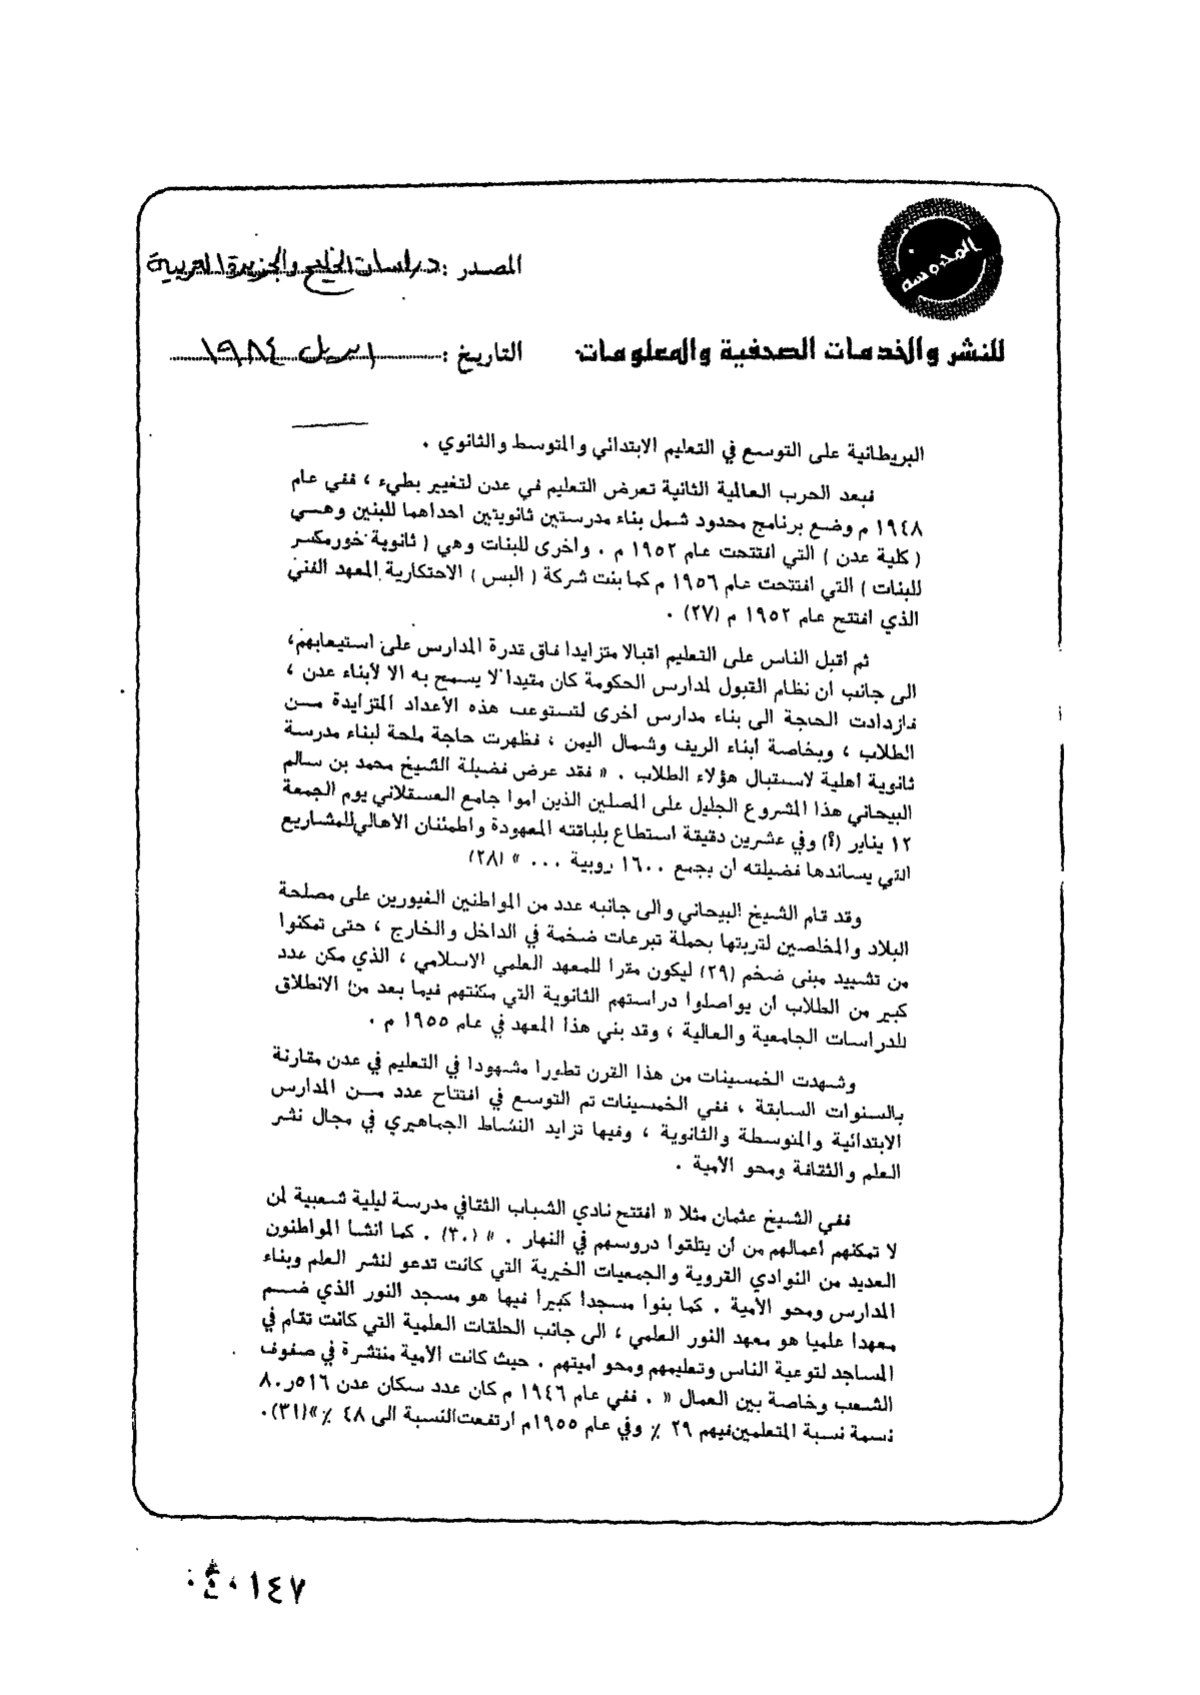 المصدر : دراسات الخليج والجزيرة العربية
للنشر والخدمات الصحفية والمعلومات
التاريخ : ابريل ١٩٨٤
البريطانية على التوسع في التعليم الابتدائي والمتوسط والثانوي .
فبعد الحرب العالمية الثانية تعرض التعليم في عدن لتغيير بطيء ، ففي عام
١٩٤٨ م وضع برنامج محدود شمل بناء مدرستين ثانويتين احداهما للبنين وهسي
( كلية عدن ) التي افتتحت عام ١٩٥٢ م . واخرى للبنات وهي ( ثانوية خورمكسر
للبنات ) التي افتتحت عام ١٩٥٦ م كما بنت شركة ( البس ) الاحتكارية المعهد الفني
الذي افتتح عام ١٩٥٢ م (٢٧) .
ثم اقبل الناس على التعليم اقبالا متزايدا فاق قدرة المدارس على استيعابهم،
الى جانب ان نظام القبول لمدارس الحكومة كان مقيدا لا يسمح به الا لأبناء عدن ،
فازدادت الحاجة الى بناء مدارس اخرى لتستوعب هذه الأعداد المتزايدة مسن
الطلاب ، وبخاصة ابناء الريف وشمال اليمن ، فظهرت حاجة ملحة لبناء مدرسة
ثانوية اهلية لاستقبال هؤلاء الطلاب . « فقد عرض فضيلة الشيخ محمد بن سالم
البيحاني هذا المشروع الجليل على المصلين الذين اموا جامع العسقلاني يوم الجمعة
١٢ يناير (؟) وفي عشرين دقيقة استطاع بلباقته المعهودة واطمئنان الأهالي للمشاريع
التي يساندها فضيلته ان يجمع ١٦٠٠ روبية ... » (٢٨)
وقد قام الشيخ البيحاني والى جانبه عدد من المواطنين الغيورين على مصلحة
البلاد والمخلصين لتربتها بحملة تبرعات ضخمة في الداخل والخارج ، حتى تمكنوا
من تشييد مبنى ضخم (٢٩) ليكون مقرا للمعهد العلمي الاسلامي ، الذي مكن عدد
كبير من الطلاب ان يواصلوا دراستهم الثانوية التي مكنتهم فيما بعد من الانطلاق
للدراسات الجامعية والعالية ، وقد بني هذا المعهد في عام ١٩٥٥ م .
وشهدت الخمسينات من هذا القرن تطورا مشهودا في التعليم في عدن مقارنة
بالسنوات السابقة ، ففي الخمسينات تم التوسع في افتتاح عدد مسن المدارس
الابتدائية والمتوسطة والثانوية ، وفيها تزايد النشاط الجماهيري في مجال نشر
العلم والثقافة ومحو الأمية .
ففي الشيخ عثمان مثلا « افتتح نادي الشباب الثقافي مدرسة ليلية شعبية لمن
لا تمكنهم أعمالهم من أن يتلقوا دروسهم في النهار . » (٣٠) . كما انشا المواطنون
العديد من النوادي القروية والجمعيات الخيرية التي كانت تدعو لنشر العلم وبناء
المدارس ومحو الأمية . كما بنوا مسجدا كبيرا فيها هو مسجد النور الذي ضسم
معهدا علميا هو معهد النور العلمي ، الى جانب الحلقات العلمية التي كانت تقام في
المساجد لتوعية الناس وتعليمهم ومحو اميتهم . حيث كانت الأمية منتشرة في صفوف
الشعب وخاصة بين العمال « . ففي عام ١٩٤٦ م كان عدد سكان عدن ٨٠ر٥١٦
نسمة نسبة المتعلمين فيهم ٢٩ ٪ وفي عام ١٩٥٥م ارتفعت النسبة الى ٤٨ ٪»(٣١).